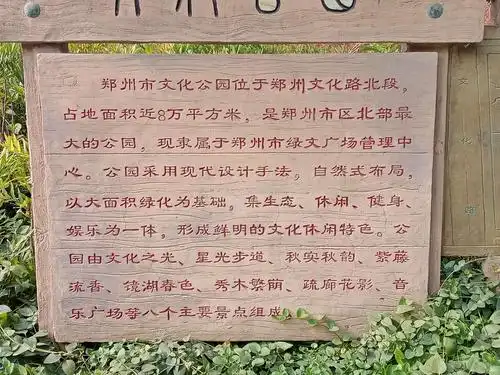 郑州市文化公园位于郑州文化路北段，
占地面积近8万平方米，是郑州市区北部最
大的公园，现隶属于郑州市绿文广场管理中
心。公园采用现代设计手法，自然式布局，
以大面积绿化为基础。集生态、休闲、健身、
娱乐为一体，形成鲜明的文化休闲特色。公
园由文化之光、星光步道、秋实秋韵、紫藤
流香、镜湖春色、秀木繁荫、疏廊花影、音
乐广场等八个主要景点组成。